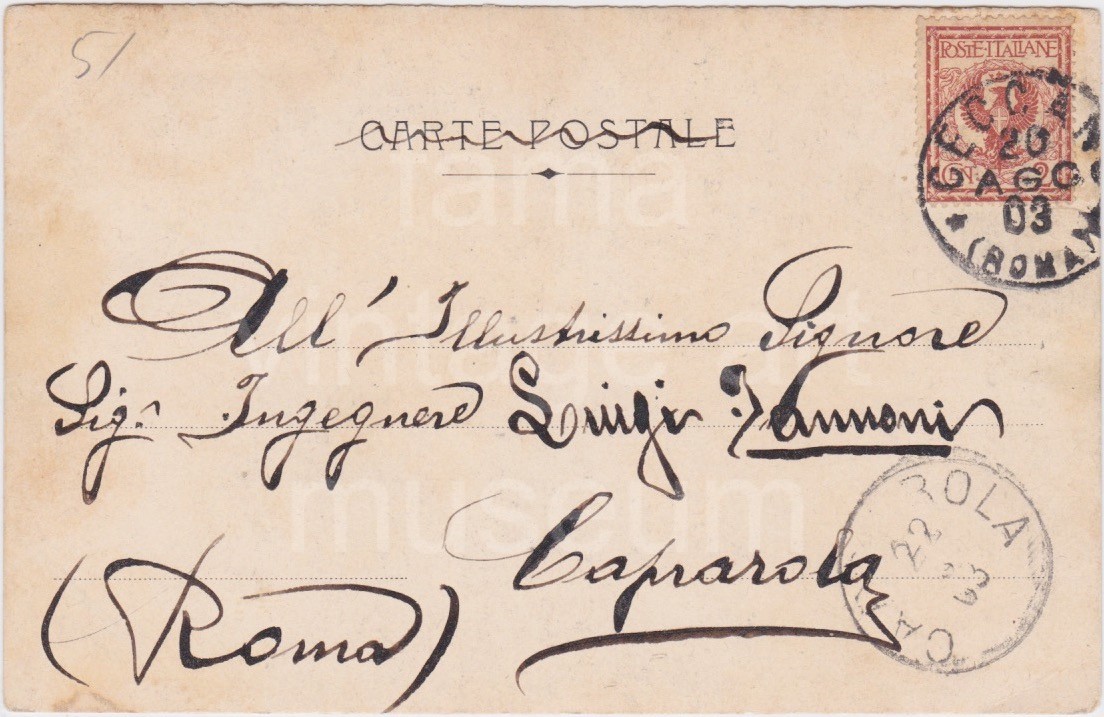 51
CARTE POSTALE
POSTE·ITALIANE
CEN. 2
CECCAN
20
AGO
03
(ROMA)
All' Illustrissimo Signore
Sig.r Ingegnere Luigi Jannoni
Caprarola
(Roma)
ROLA
22
03
CAP
fama
vintage art
museum